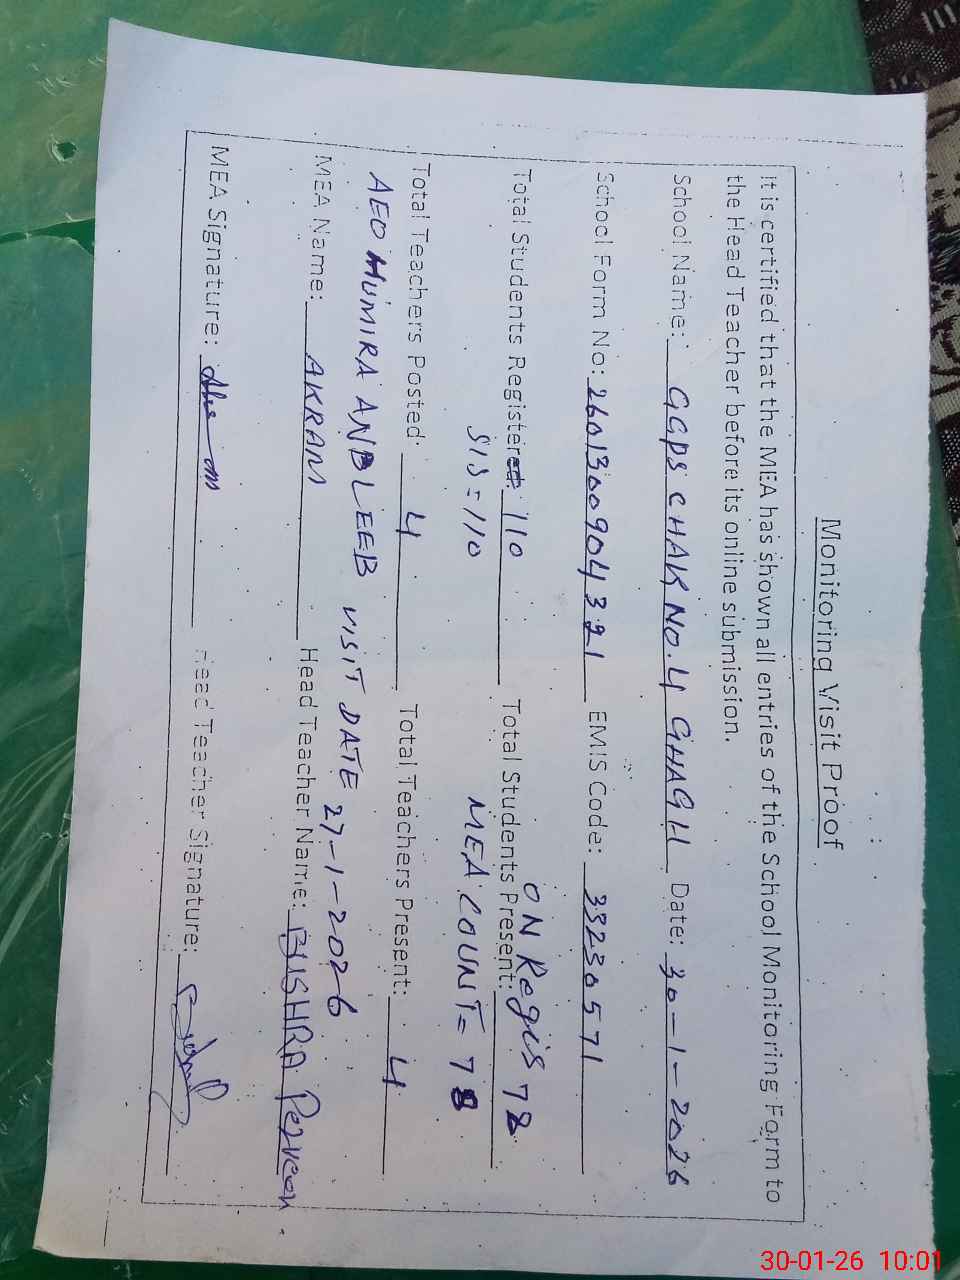 Monitoring Visit Proof
It is certified that the MEA has shown all entries of the School Monitoring Form to
the Head Teacher before its online submission.
School Name: GGPS CHAK NO.4 GHAGH Date: 30-1-2026
School Form No: 2601300904321 EMIS Code: 33230571
ON Regis 78
Total Students Registered: 110 Total Students Present:
SIS=110 MEA COUNT=78
Total Teachers Posted: 4 Total Teachers Present: 4
AEO HUMIRA ANBLEEB VISIT DATE 27-1-2026
MEA Name: AKRAM Head Teacher Name: BUSHRA Perveen
MEA Signature: Head Teacher Signature:
30-01-26 10:01